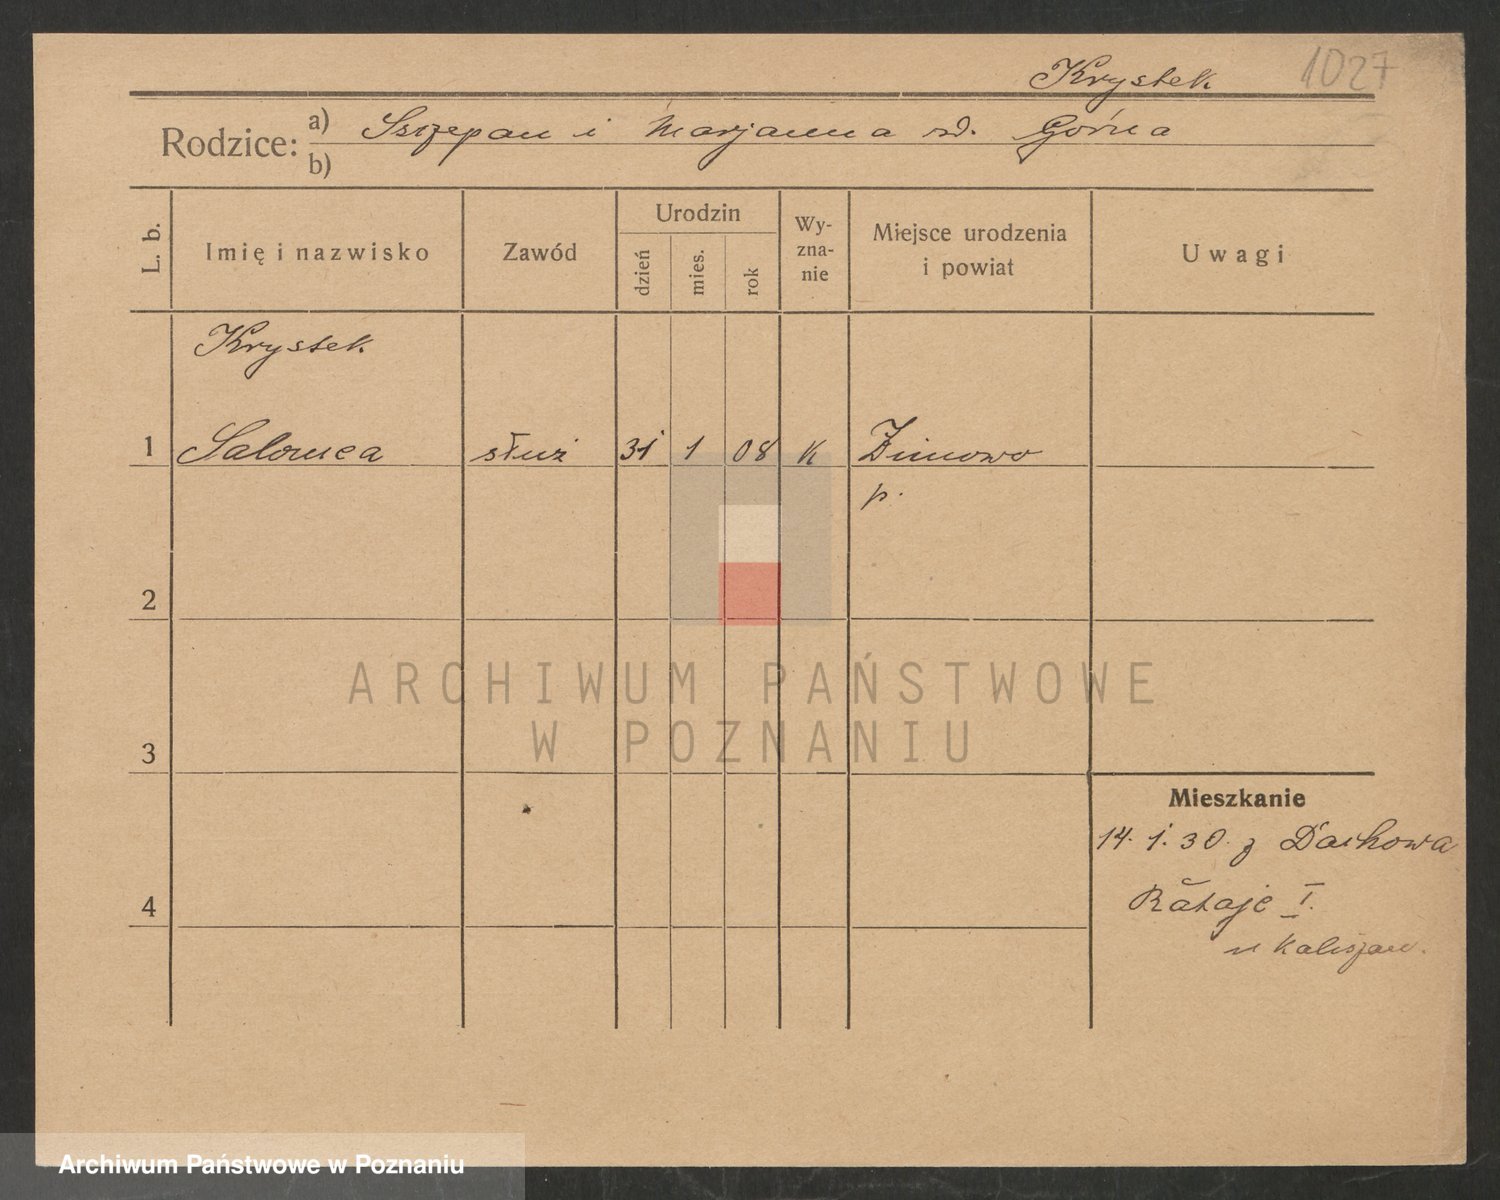 Krystek 1027
Rodzice: a) Szczepan i Marjanna rd. Górna
b)
L. b. Imię i nazwisko Zawód Urodzin dzień mies. rok Wy-zna-nie Miejsce urodzenia i powiat Uwagi
Krystek
1 Salomea służ 31 1 08 K Zimowo
p.
2
ARCHIWUM PAŃSTWOWE
W POZNANIU
3
Mieszkanie
14. 1. 30. z Dachowa
4 Rataje I.
u Kaliszan.
Archiwum Państwowe w Poznaniu